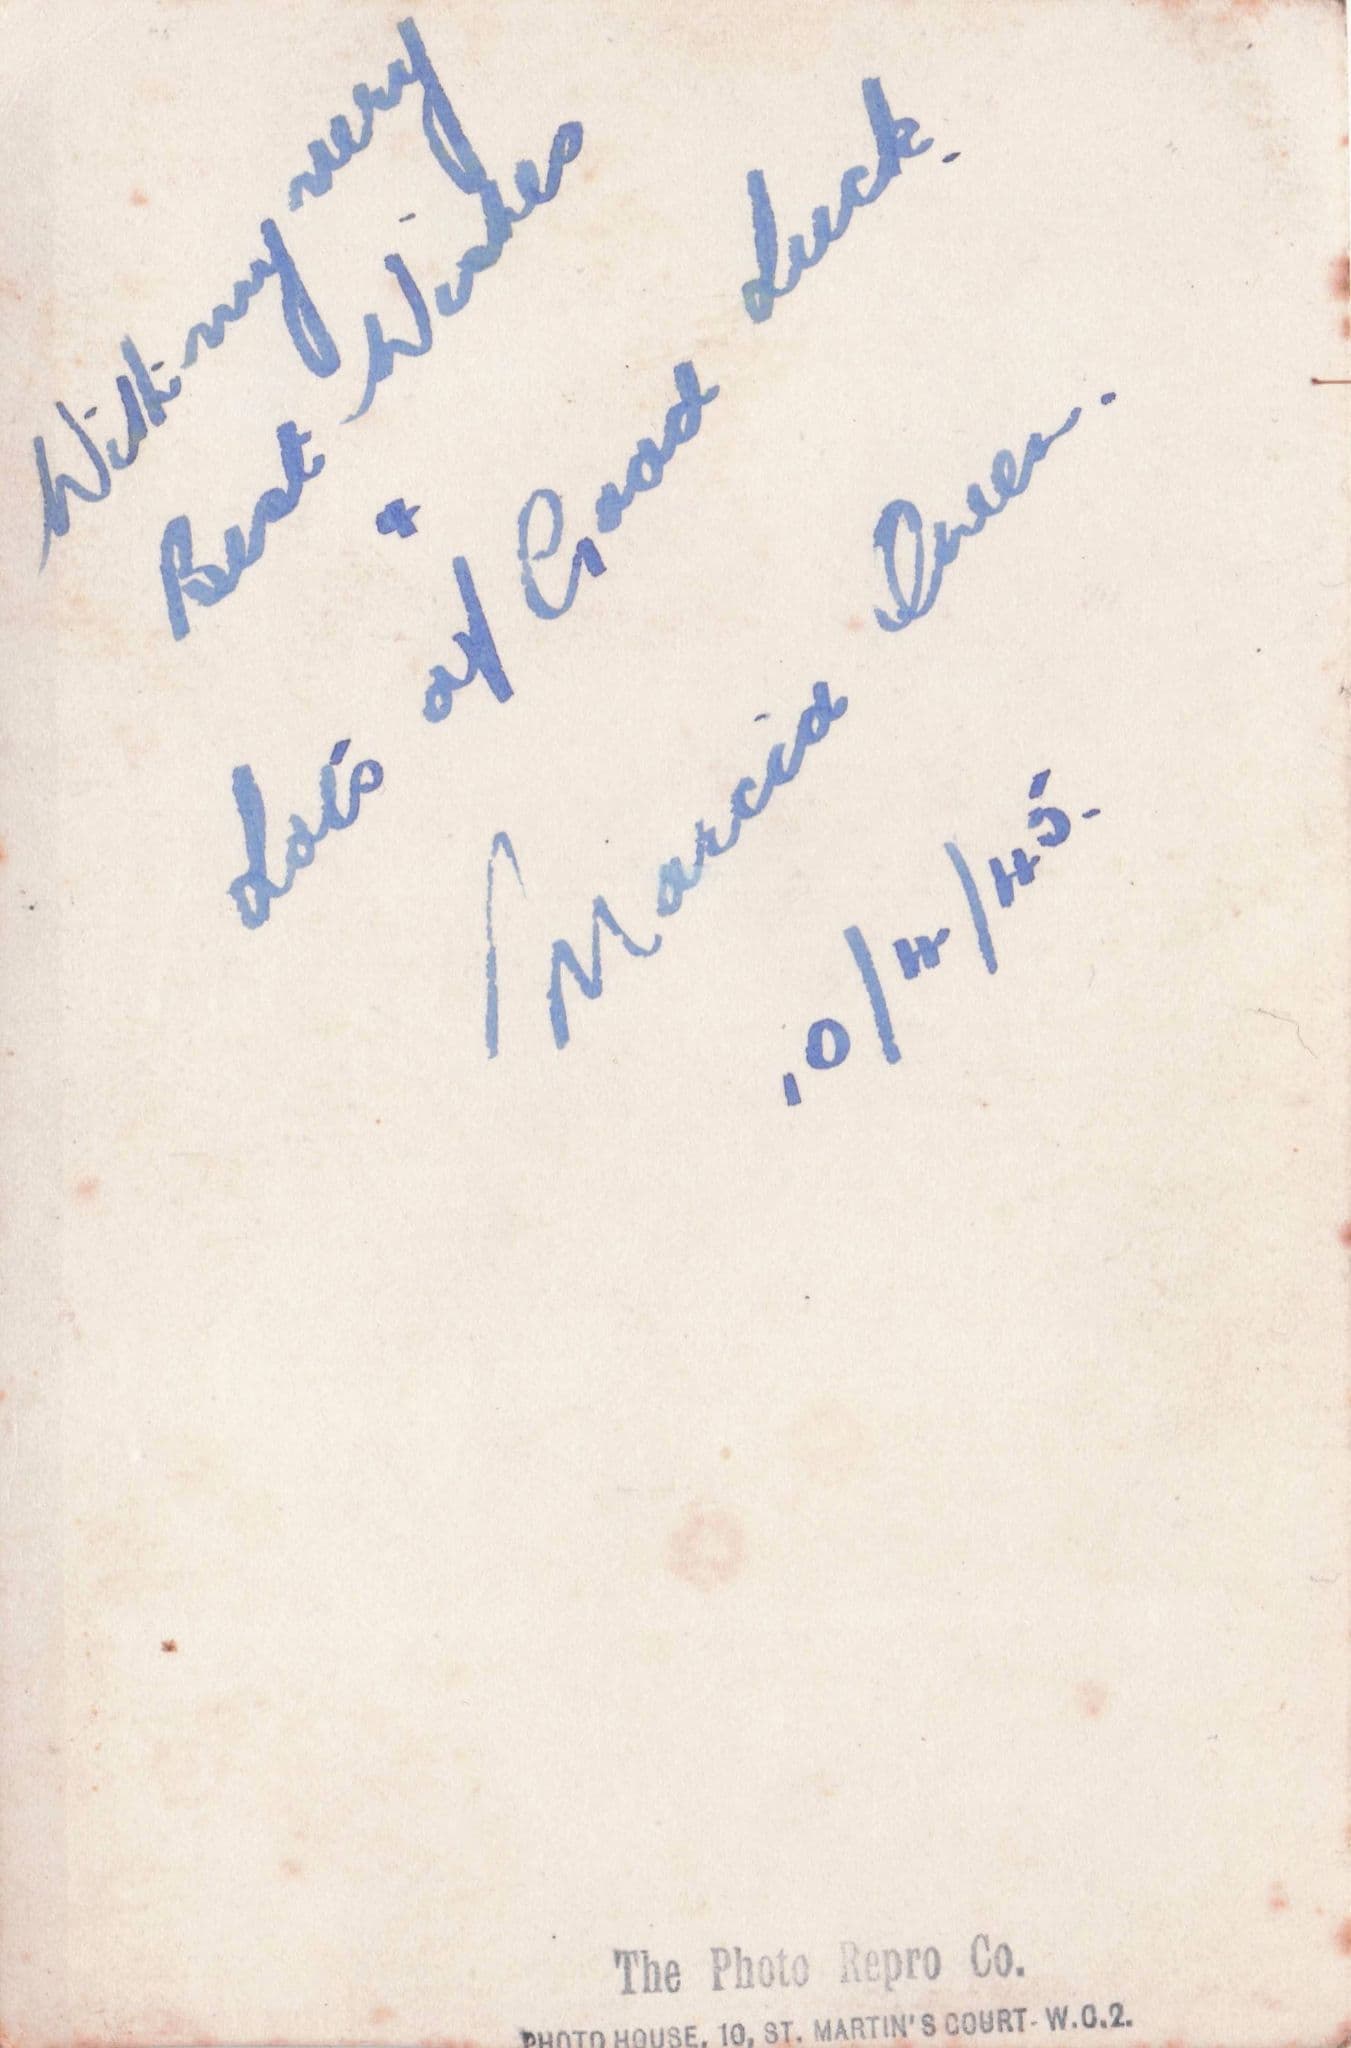 With my very
Best Wishes
+
Lots of Good Luck.
Marcia Owen.
10/4/45.
The Photo Repro Co.
PHOTO HOUSE, 10, ST. MARTIN'S COURT- W.C.2.